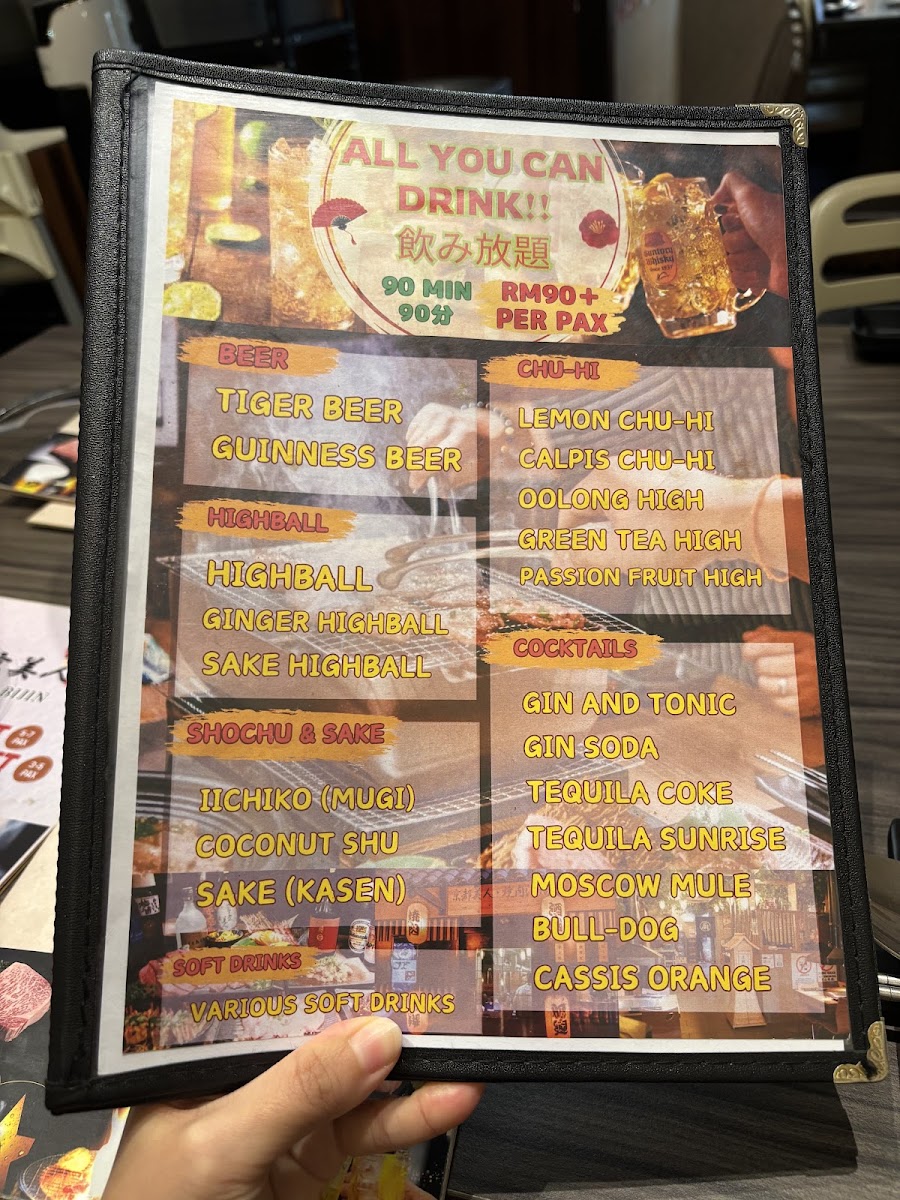 ALL YOU CAN
DRINK!!
飲み放題
90 MIN
90分
RM90+
PER PAX
SUNTORY
WHISKY
BEER
TIGER BEER
GUINNESS BEER
HIGHBALL
HIGHBALL
GINGER HIGHBALL
SAKE HIGHBALL
SHOCHU & SAKE
IICHIKO (MUGI)
COCONUT SHU
SAKE (KASEN)
SOFT DRINKS
VARIOUS SOFT DRINKS
CHU-HI
LEMON CHU-HI
CALPIS CHU-HI
OOLONG HIGH
GREEN TEA HIGH
PASSION FRUIT HIGH
COCKTAILS
GIN AND TONIC
GIN SODA
TEQUILA COKE
TEQUILA SUNRISE
MOSCOW MULE
BULL-DOG
CASSIS ORANGE
美人
BIJIN
PAX
PAX